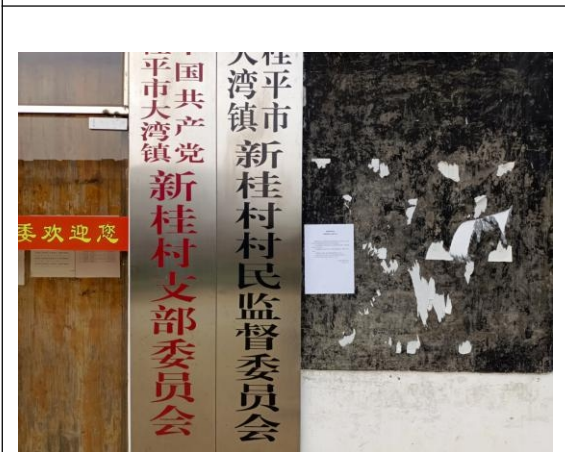 委欢迎您
国共产党
桂平市大湾镇
新桂村支部委员会
桂平市
大湾镇
新桂村村民监督委员会